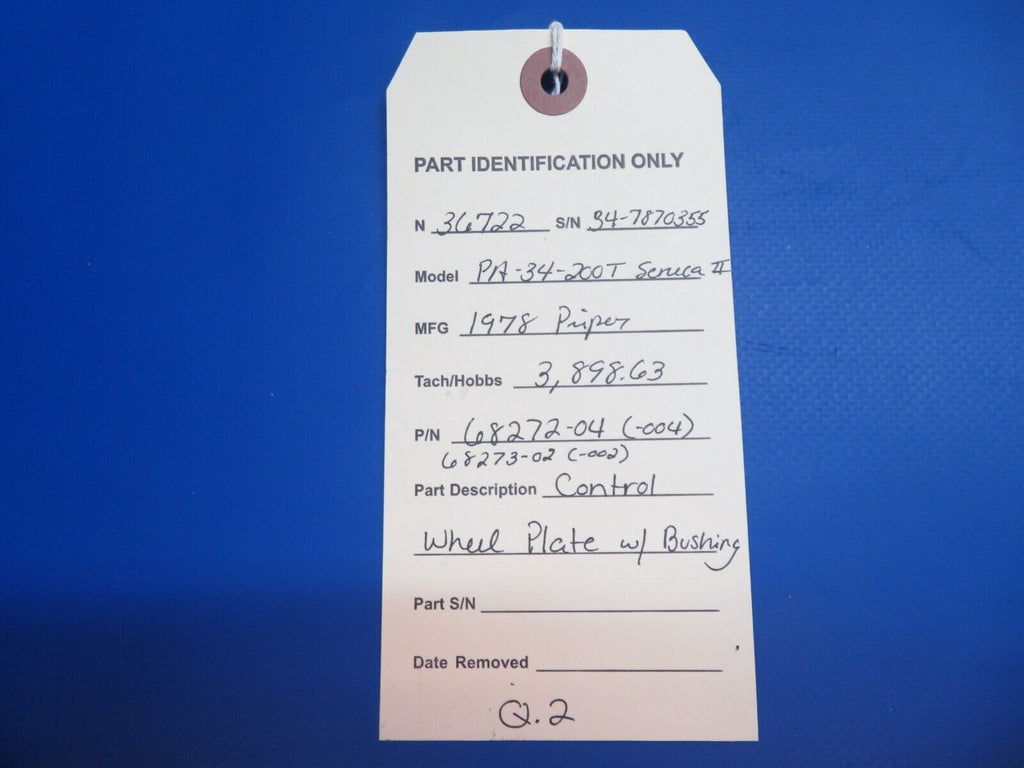 PART IDENTIFICATION ONLY
N 36722 S/N 34-7870355
Model PA-34-200T Seneca II
MFG 1978 Piper
Tach/Hobbs 3,898.63
P/N 68272-04 (-004)
68273-02 (-002)
Part Description Control
Wheel Plate w/ Bushing
Part S/N
Date Removed
Q.2